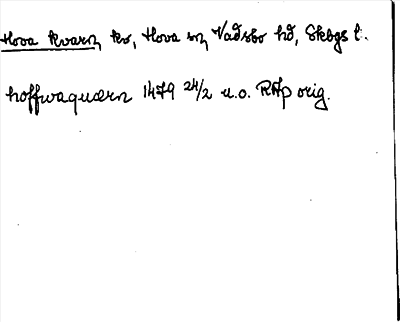 Hova Kvarn, kv, Hova sn, Vadsbo hd, Skbgs l.
hoffwaquærn 1479 24/2 u.o. RAp orig.